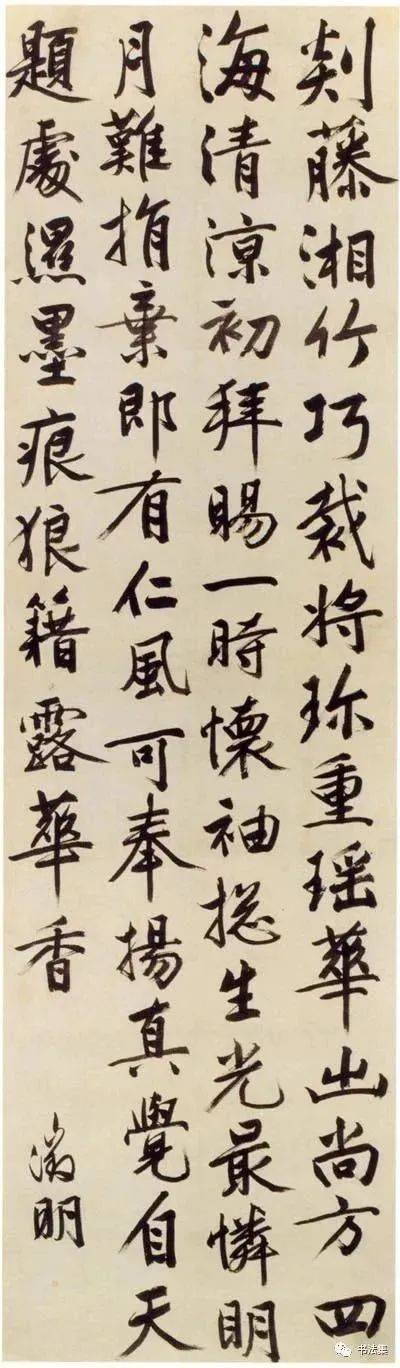 剡藤湘竹巧裁將珎重瑶華出尚方四
海清涼初拜賜一時懷袖捴生光最憐明
月難捐棄即有仁風可奉揚真覺自天
題處濕墨痕狼籍露華香
徵明
书法集